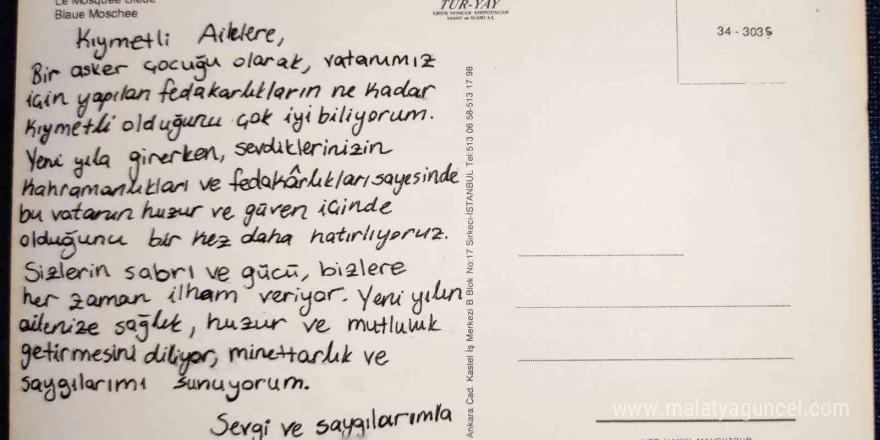 Le Mosquée Bleue
Blaue Moschee
Kıymetli Ailelere,
Bir asker çocuğu olarak, vatanımız
için yapılan fedakarlıkların ne kadar
kıymetli olduğunu çok iyi biliyorum.
Yeni yıla girerken, sevdiklerinizin
kahramanlıkları ve fedakârlıkları sayesinde
bu vatanın huzur ve güven içinde
olduğunu bir kez daha hatırlıyoruz.
Sizlerin sabrı ve gücü, bizlere
her zaman ilham veriyor. Yeni yılın
ailenize sağlık, huzur ve mutluluk
getirmesini diliyor, minettarlık ve
saygılarımı sunuyorum.
Sevgi ve saygılarımla
TUR-YAY
TURİSTİK YAYINCILIK KARTPOSTALCILIK
SANAYİ ve TİCARET A.Ş.
Ankara Cad. Kastel İş Merkezi B Blok No:17 Sirkeci-İSTANBUL Tel:513 06 58-513 17 98
34 - 303 Ş
www.malatyaguncel.com